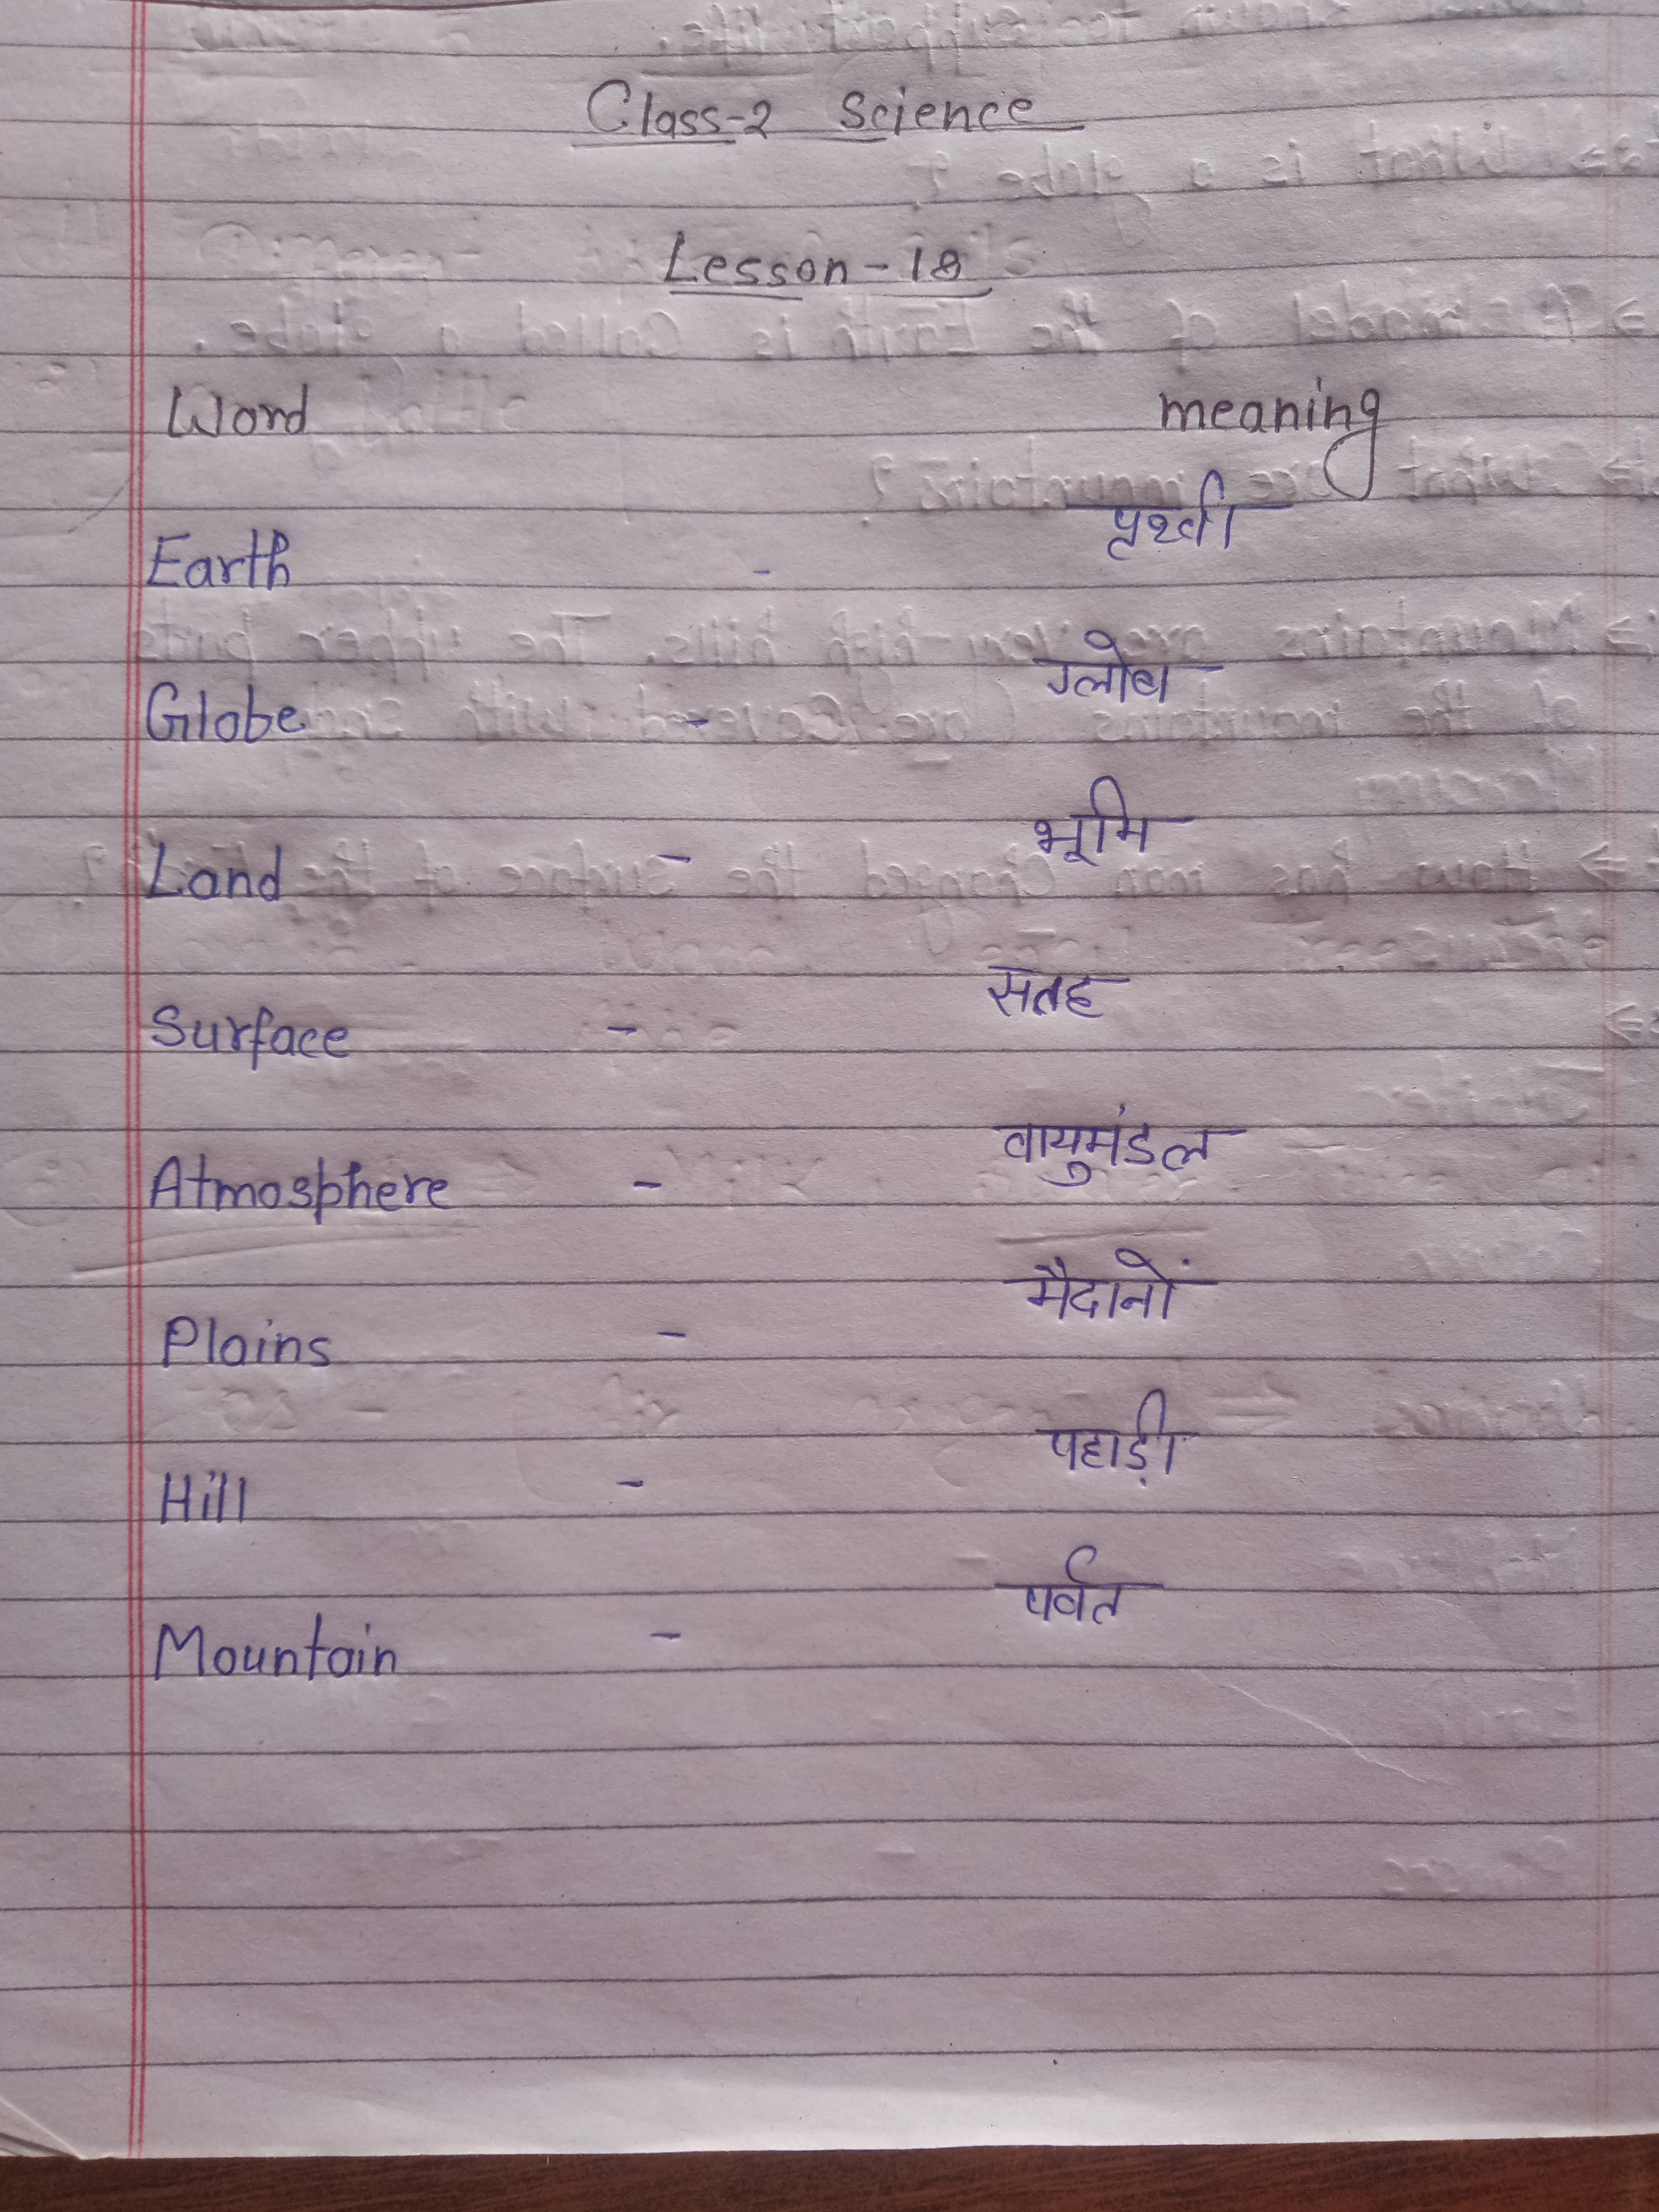 Class-2 Science
Lesson-18
Word meaning
Earth - पृथ्वी
Globe - ग्लोब
Land - भूमि
Surface - सतह
Atmosphere - वायुमंडल
Plains - मैदानों
Hill - पहाड़ी
Mountain - पर्वत